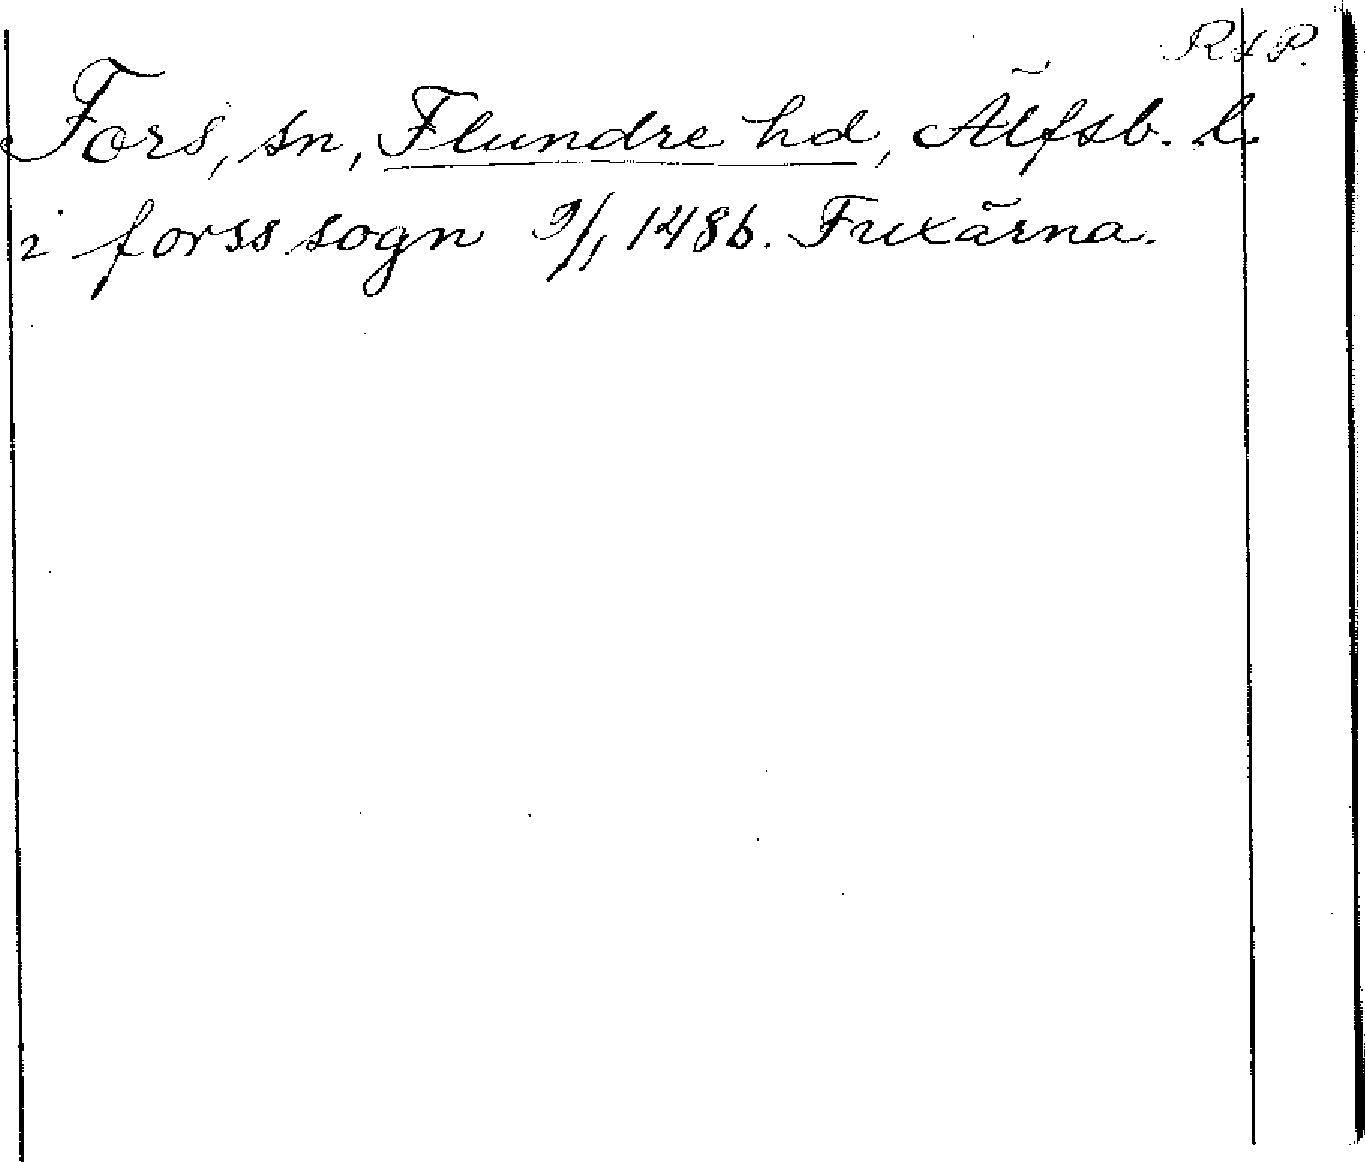 RAP.
Fors, sn, Flundre hd, Älfsb. l.
i forss sogn 9/1 1486. Fuxärna.